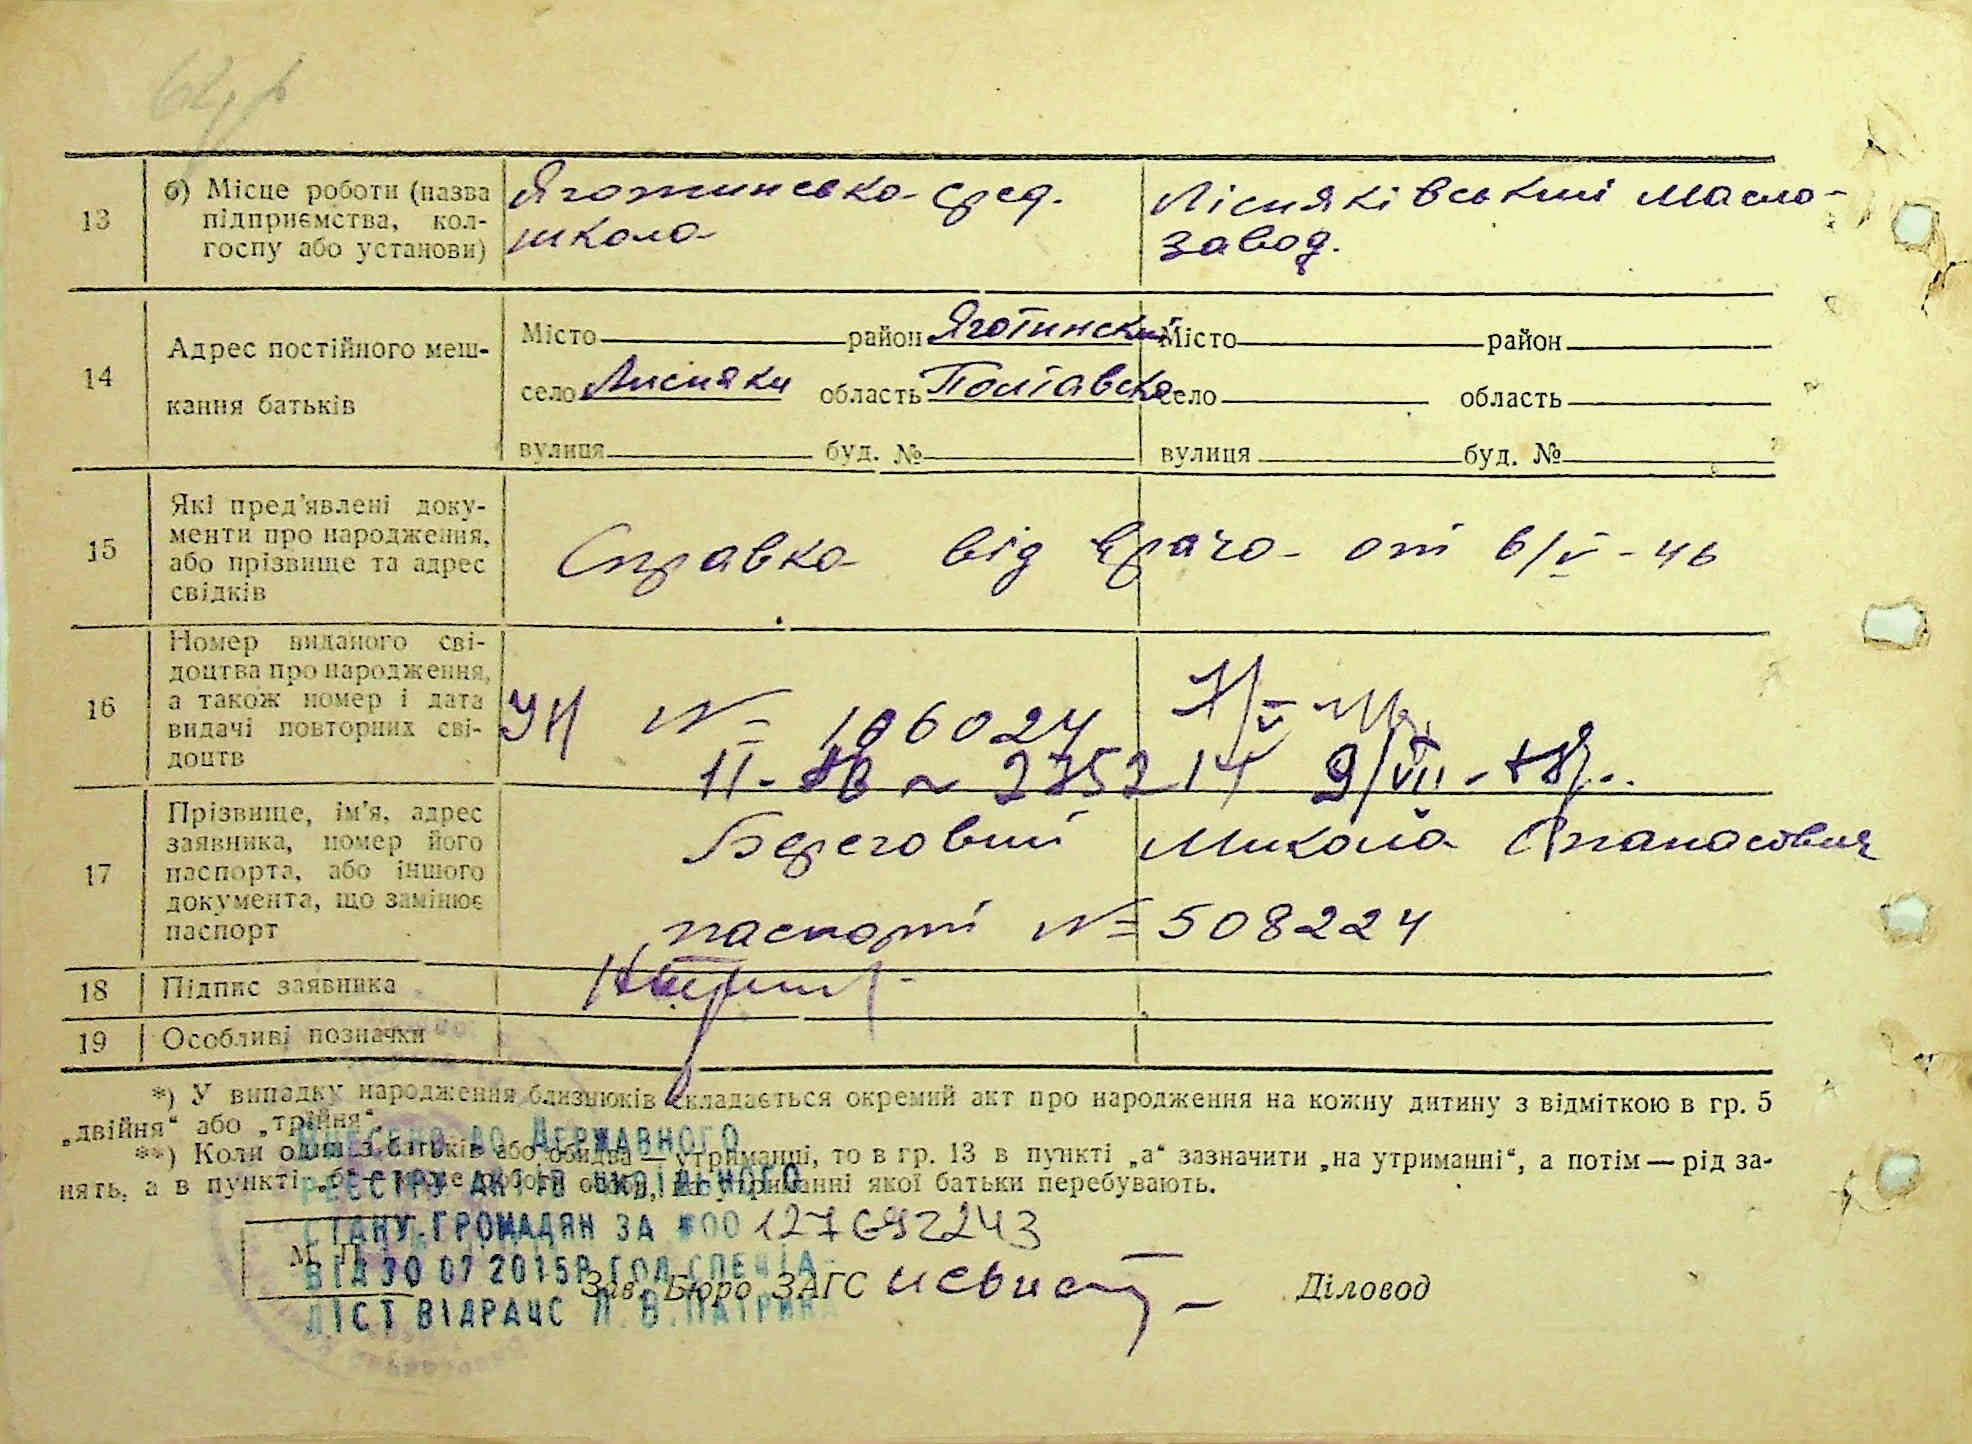 13
б) Місце роботи (назва
підприємства, кол-
госпу або установи)
Яготинська сред.
школа
Лісняківський Масло-
завод.
14
Адрес постійного меш-
кання батьків
Місто район Яготинский
село Лисняки область Полтавска
вулиця буд. №
Місто район
село область
вулиця буд. №
15
Які пред'явлені доку-
менти про народження,
або прізвище та адрес
свідків
Справка від врача от 6/V-46
16
Номер виданого сві-
доцтва про народження,
а також номер і дата
видачі повторних сві-
доцтв
№ 106024
17
Прізвище, ім'я, адрес
заявника, номер його
паспорта, або іншого
документа, що замінює
паспорт
Береговий Микола Опанасович
паспорт № 508224
18
Підпис заявника
19
Особливі позначки
*) У випадку народження близнюків складається окремий акт про народження на кожну дитину з відміткою в гр. 5
„двійня“ або „трійня“.
**) Коли один з батьків або обидва — утриманці, то в гр. 13 в пункті „а“ зазначити „на утриманні“, а потім — рід за-
нять, а в пункті „б“ — місце роботи особи, на утриманні якої батьки перебувають.
ВНЕСЕНО ДО ДЕРЖАВНОГО
РЕЄСТРУ АКТІВ ЦИВІЛЬНОГО
СТАНУ ГРОМАДЯН ЗА #00127692243
ВІД 30 07 2015Р ГОЛ СПЕЦІА-
ЛІСТ ВІДРАЦС
М. П.
Зав. Бюро ЗАГС
Діловод